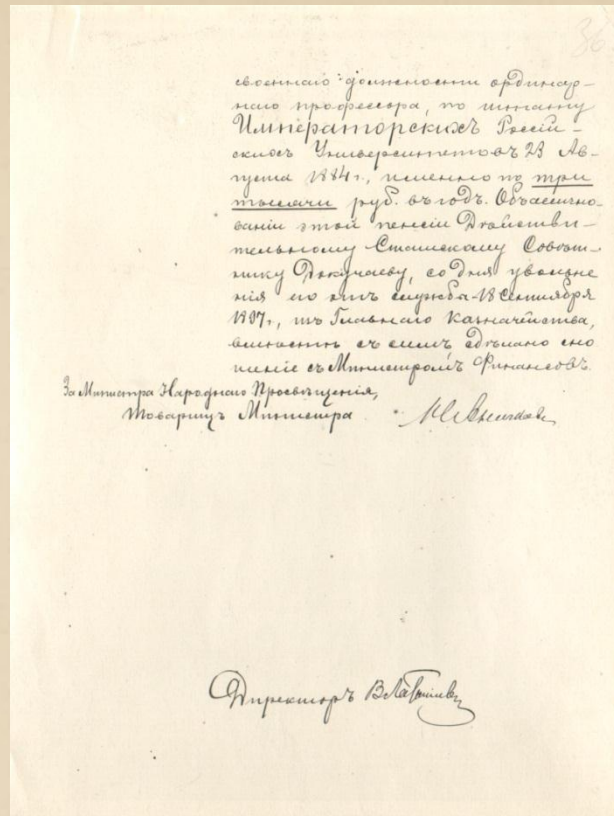 36
своеннаго должности ординар-
наго профессора, по штату
Императорскихъ Россій-
скихъ Университетовъ 23 Ав-
густа 1884 г., именно по три
тысячи руб. въ годъ. Объ ассигно-
ваніи этой пенсіи Дѣйстви-
тельному Статскому Совѣт-
нику Докучаеву, со дня увольне
нія его отъ службы - 18 Сентября
1897 г., изъ Главнаго Казначейства,
вмѣстѣ съ симъ сдѣлано сно
шеніе съ Министромъ Финансовъ
За Министра Народнаго Просвѣщенія,
Товарищъ Министра
Директоръ В Латышевъ